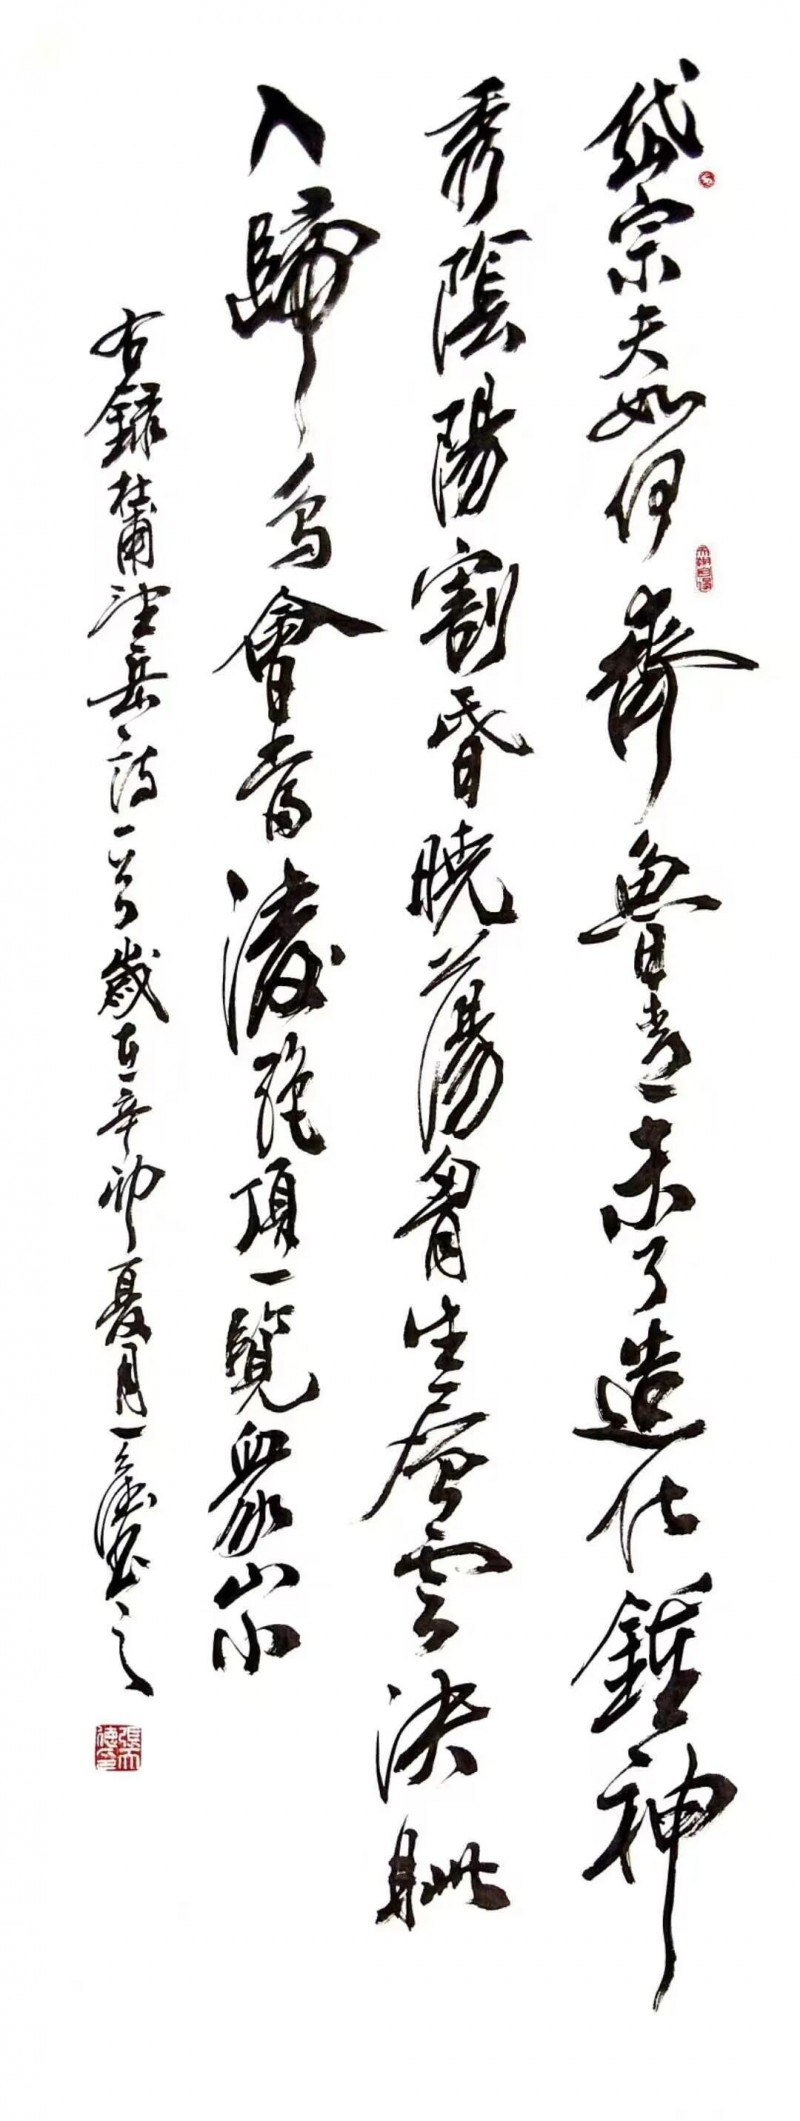 岱宗夫如何齊魯青未了造化鍾神
秀陰陽割昏曉蕩胷生層雲決眦
入歸鳥會當淩絕頂一覽衆山小
右錄杜甫望岳詩一首歲在辛卯夏月一德書之